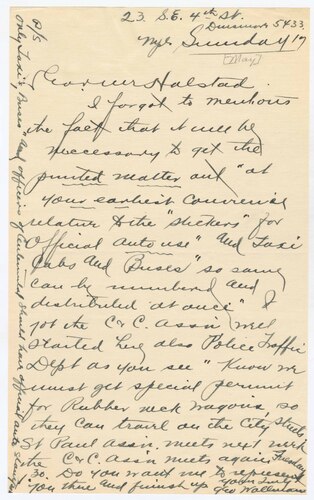 23. S.E. 4th St.
Dinsmore 5433
Mpls Sunday 17
[May]
Halstad.
I forgot to mention
the fact that it will be
necessary to get the
printed matter out "at
your earliest convenience
relative to the "stickers" for
Official auto use" and Taxi
Cabs and Buses" so same
can be numbered and
distributed at once" I
got the C & C. Assn well
started here also Police Traffic
Dept as you see" Know we
must get special permit
for Rubber neck wagons, so
they can travel on the City Streets
St Paul Assn meets next week
the C & C Assn meets again Thursday
. 30. Do you want me to represent
you there and finish up
Yours Truly
P/S
only Taxi's, Buses" and officers of automobiles should have official auto